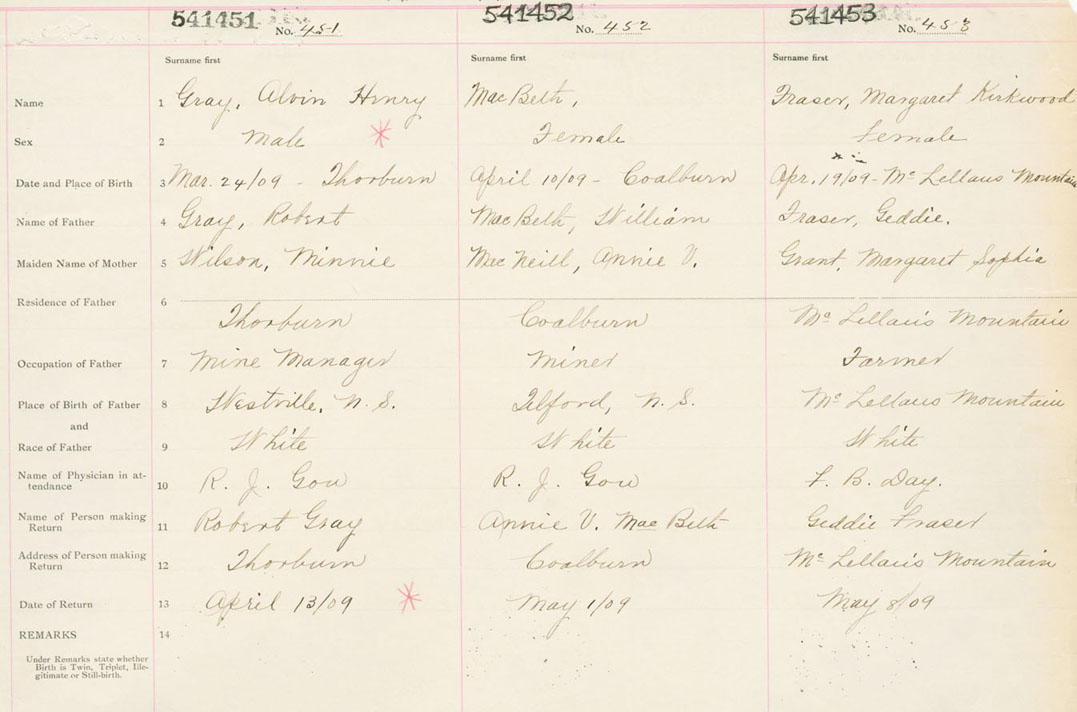 541451 541452 541453
No. 451 No. 452 No. 453
Surname first Surname first Surname first
Name 1 Gray, Alvin Henry MacBeth, Fraser, Margaret Kirkwood
Sex 2 Male Female Female
Date and Place of Birth 3 Mar. 24/09 - Thorburn April 10/09 - Coalburn Apr. 19/09 - Mc Lellans Mountain
Name of Father 4 Gray, Robert MacBeth, William Fraser, Geddie.
Maiden Name of Mother 5 Wilson, Minnie MacNeill, Annie V. Grant, Margaret Sophia
Residence of Father 6
Thorburn Coalburn Mc Lellan's Mountain
Occupation of Father 7 Mine Manager Miner Farmer
Place of Birth of Father 8 Westville, N. S. Telford, N. S. Mc Lellans Mountain
and
Race of Father 9 White White White
Name of Physician in at-
tendance 10 R. J. F. B. Day.
R. J.
Name of Person making
Return 11 Robert Gray Annie V. MacBeth Geddie Fraser
Address of Person making
Return 12 Thorburn Coalburn Mc Lellan's Mountain
Date of Return 13 April 13/09 May 1/09 May 8/09
REMARKS 14
Under Remarks state whether
Birth is Twin, Triplet, Ille-
gitimate or Still-birth.